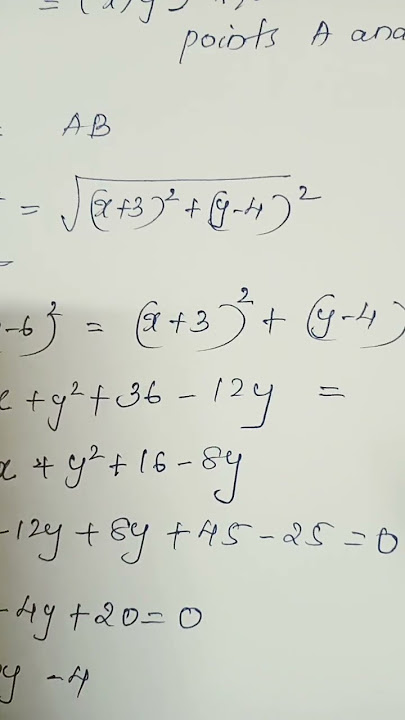 points A and
AB
= √(x+3)² + (y-4)²
-6}² = (x+3)² + (y-4)
+ y² + 36 - 12y =
x + y² + 16 - 8y
-12y + 8y + 45 - 25 = 0
-4y + 20 = 0
y - 4